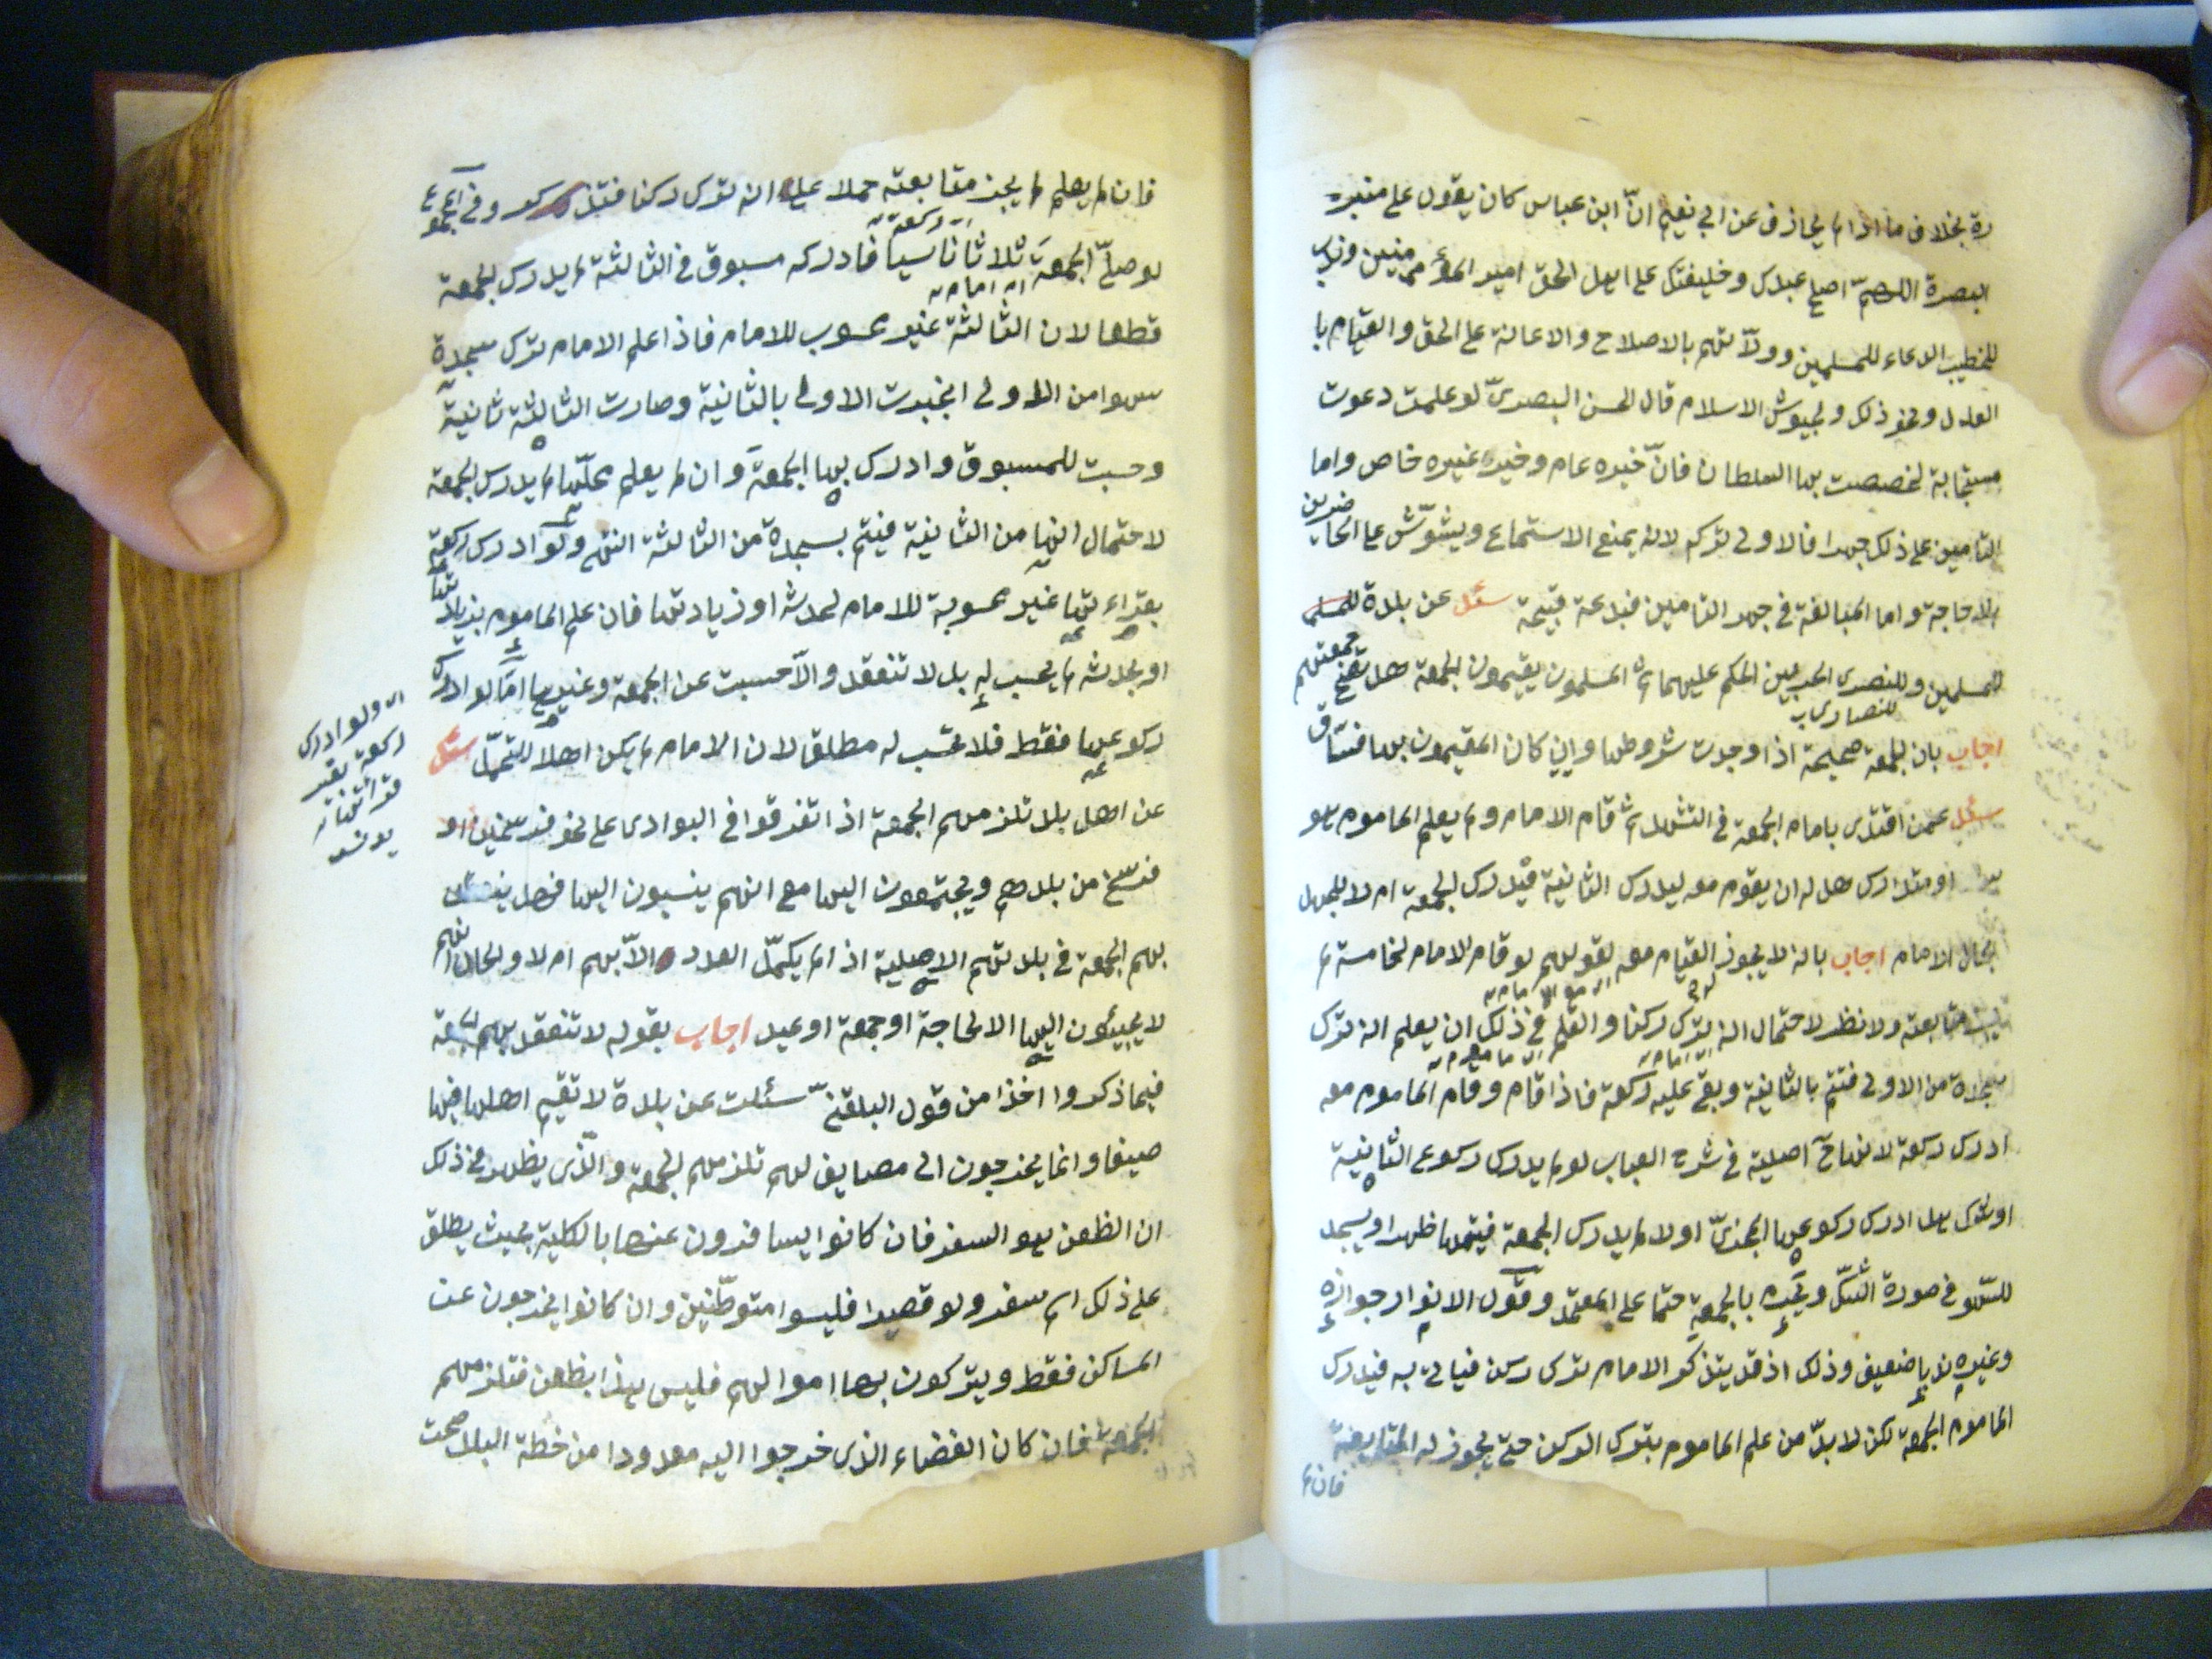 رة بخلاف ما اذا لم يجازف عن ابي نعيم انّ ابن عباس كان يقول على منبر
البصرة اللهمّ اصلح عبدك وخليفتك على اهل الحق امير المؤمنين
للخطيب الدعاء للمسلمين وولاتهم بالاصلاح والاعانة على الحق والقيام با
العدل ونحو ذلك ولجيوش الاسلام قال الحسن البصريّ لو علمت دعوت
مستجابة لخصصت بها السلطان فانّ خيره عام وخير غيره خاص واما
التامين على ذلك جهرا فالاولى تركه لانه يمنع الاستماع ويشوّش على الحاضرين
بلا حاجة واما المبالغة في جهر التامين فبدعة قبيحة سئل عن بلدة
للمسلمين وللنصرى الحربيين الحكم عليهما المسلمون يقيمون الجمعة هل تصح جمعتهم
للنصارى
اجاب بان الجمعة صحيحة اذا وجدت شروطها وان كان المقيمون بها فساق
سئل عمن اقتدى بامام الجمعة في التشهد ثم قام الامام ولم يعلم الماموم هو
او متدارك هل له ان يقوم معه ليدرك الثانية فيدرك الجمعة ام لا للجهل
بحال الامام اجاب بانه لا يجوز القيام معه لقولهم لو قام الامام لخامسة لم
متابعته ولا نظر لاحتمال انه ترك ركنا والعلم في ذلك ان يعلم انه ترك
سجدة من الاولى فتتم بالثانية وبقي عليه ركعة فاذا قام وقام الماموم معه
ادرك ركعة لانها ح اصلية في شرح العباب لو لم يدرك ركوع الثانية
او شك هل ادرك ركوعها المجزئ او لا لم يدرك الجمعة فيتمها ظهرا ويسجد
للسهو في صورة الشكّ بالجمعة حتما على المعتمد وقول الانوار جوازه
وغيره ندبا ضعيف وذلك اذ قد يتذكر الامام ترك ركن فياتي به فيدرك
الماموم الجمعة لكن لا بدّ من علم الماموم بترك الركن حتى يجوز له المتابعة
فان لم
فان لم يعلم لم يجز متابعته حملا على انه ترك ركنا وفي
لو صلّى الجمعة ثلاثا ناسيا فادركه مسبوق في الثالثة لم يدرك الجمعة
قطعا لان الثالثة غير محسوب للامام فاذا علم الامام ترك سجدة
سهوا من الاولى انجبرت الاولى بالثانية وصارت الثالثة ثانية
وحسبت للمسبوق وادرك بها الجمعة وان لم يعلم محلّها لم يدرك الجمعة
لاحتمال انها من الثانية فيتم بسجدة من الثالثة انتهى ولو ادرك ركعة
بقراءتها غير محسوبة للامام لحدثه او زيادتها فان علم الماموم بزيادتها
او بحدثه لم يحسب له بل لا تنعقد والّا حسبت عن الجمعة وغيرها امّا لو ادرك
ركوعها فقط فلا تحسب له مطلقا لان الامام لم يكن اهلا للتحمّل سئل
عن اهل بلد تلزمهم الجمعة اذا تفرقوا في البوادى على نحو فرسخين او
فرسخ من بلدهم ويجتمعون اليها مع انهم ينسبون اليها فهل
بهم الجمعة في بلدتهم الاصلية اذا لم يكمّل العدد الّا بهم ام لا والحال انهم
لا يجيئون اليها الا لحاجة او جمعة او عيد اجاب بقوله لا تنعقد بهم الجمعة
فيما ذكروا اخذا من قول البلقيني سئلت عن بلدة لا تقيم اهلها فيها
صيفا وانما يخرجون الى مصايف لهم تلزمهم الجمعة والّذى يظهر في ذلك
ان الظعن هو السفر فان كانوا يسافرون عنها بالكلية بحيث يطلق
على ذلك اسم سفر ولو قصيرا فليسوا متوطّنين وان كانوا يخرجون عن
المساكن فقط ويتركون بها اموالهم فليس هذا بظعن فتلزمهم
الجمعة فان كان الفضاء الذى خرجوا اليه معدودا من خطة البلد صحت
اى ولو ادرك
ركعة